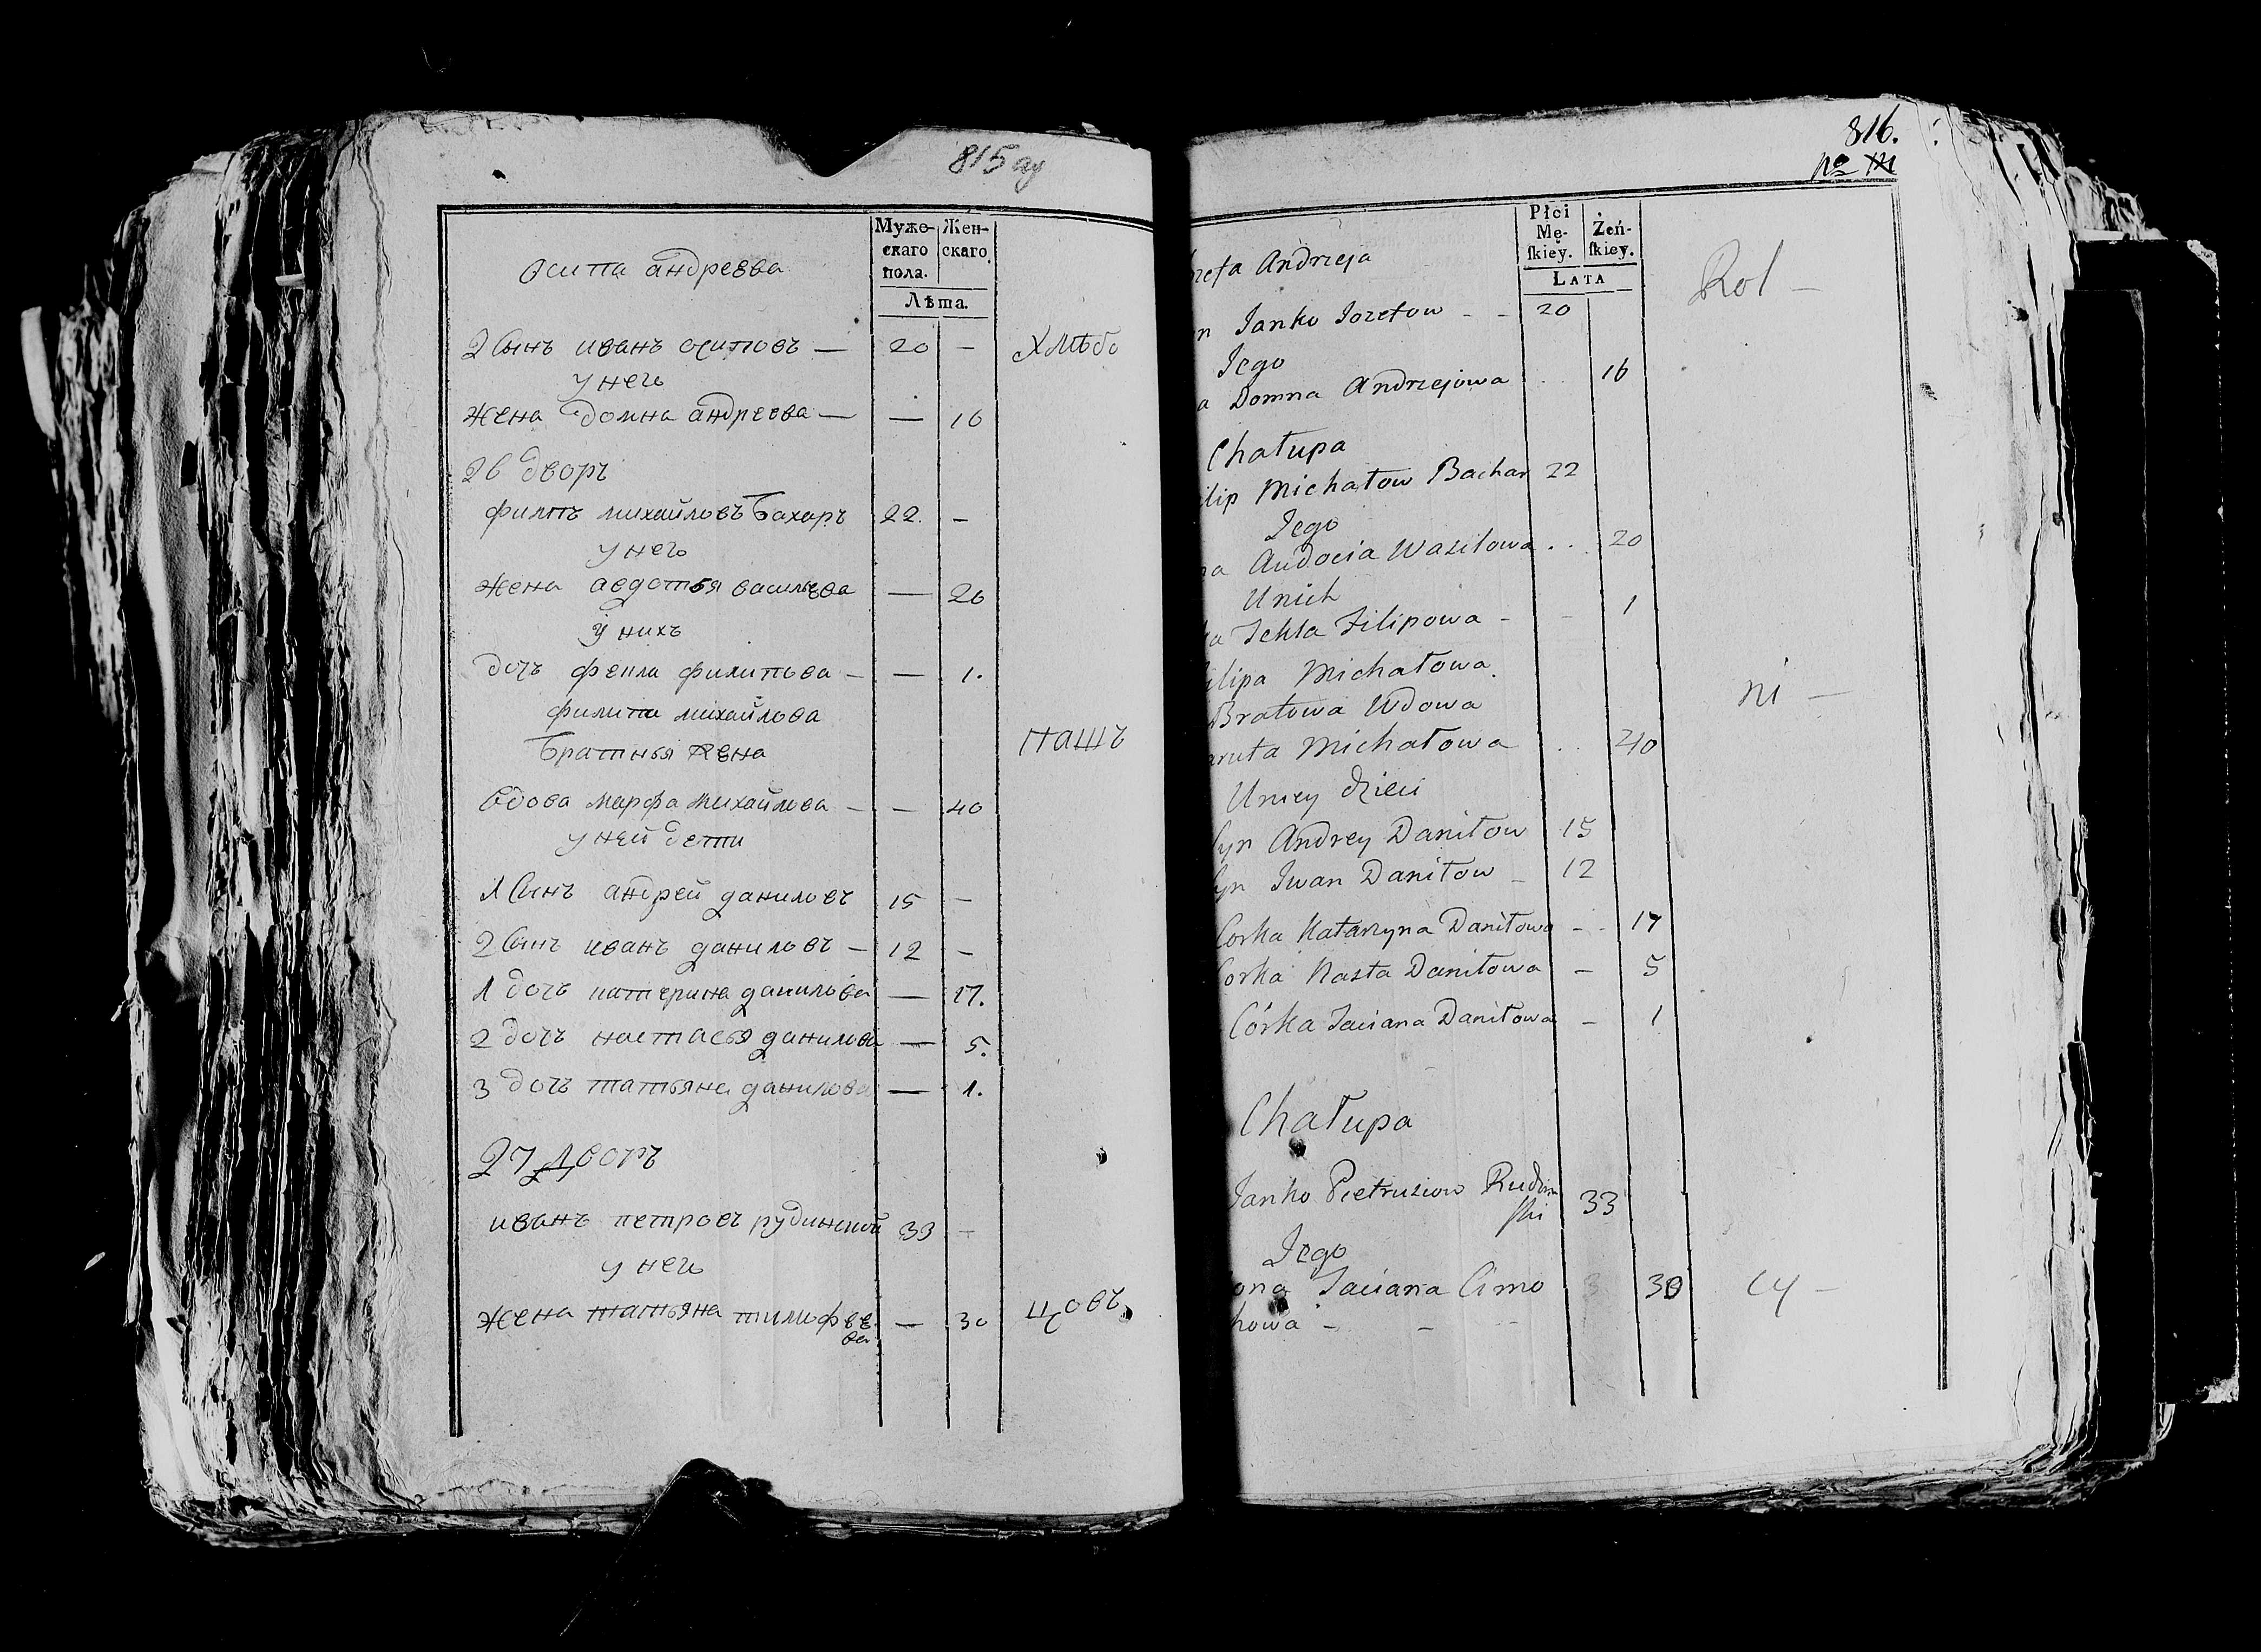 815
Муже-
скаго
пола.
Жен-
скаго.
Лѣта.
осипа андреева
2 Сынъ иванъ осиповъ — 20 — Хлѣбо
у него
жена домна андреева — — 16
26 дворъ
филипъ михайловъ Бахаръ 22. —
у него
жена авдотья васильева — 20
у нихъ
дочь фекла филипова — — 1.
филипа михайлова
Братнья жена пашъ
вдова марфа михайлова — — 40
у ней дети
1 Сынъ андрей даниловъ 15 —
2 Сынъ иванъ даниловъ — 12 —
1 дочь катерина данилова — 17.
2 дочь настасья данилова — 5.
3 дочь татьяна данилова — 1.
27 Дворъ
иванъ петровъ рудинской 33 —
у него
жена татьяна тимофее-
ва — 30 цовъ
816.
No
Płci
Mę-
skiey.
Żeń-
skiey.
LATA
zefa Andrzeja
Rol —
n Janko Jozefow - - 20
Jego
a Domna Andrzejowa . . 16
Chałupa
ilip Michałow Bachar 22
Jego
na Audocia Wasilowa . . 20
Unich
ka Tekla Filipowa - - 1
ilipa Michałowa
Bratowa Wdowa
ni —
aruta Michałowa . . 40
Uniey dzieci
Syn Andrey Daniłow 15
Syn Iwan Daniłow - 12
Corka Katarzyna Daniłowa - - 17
Corka Nasta Daniłowa - 5
Córka Taciana Daniłowa - 1
Chałupa
Janko Pietrusiow Rudzin
ski 33
Jego
ona Taciana Cimo 30 cy —
howa - - -